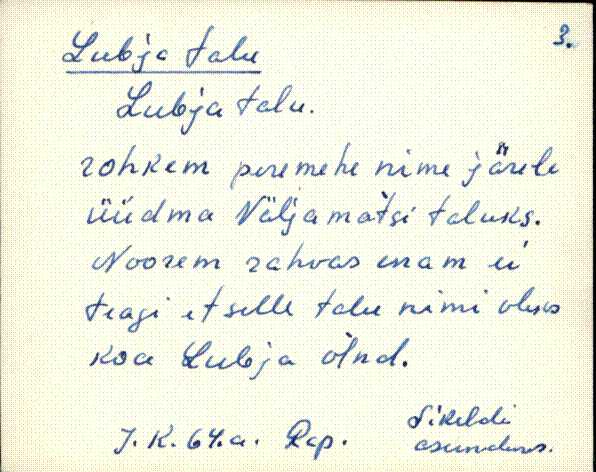 3.
Lubja talu
Lubja talu.
rohkem peremehe nime järele
üüdma Väljamatsi taluks.
Noorem rahvas enam ei
teagi et selle talu nimi oleks
koa Lubja olnd.
J. K. 64.a. Rap. Sikeldi
asundus.